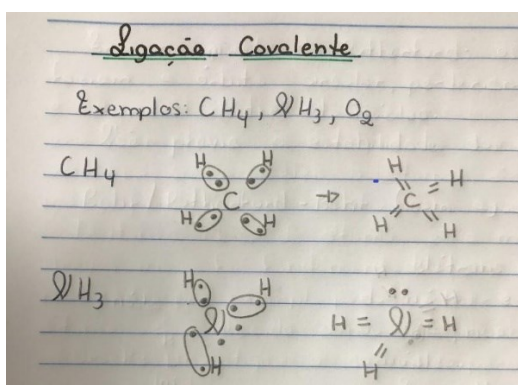 Ligação Covalente
Exemplos: CH4, NH3, O2
CH4
H H
C
H H
→
H H
C
H H
NH3
H H
N
H
H = N = H
H